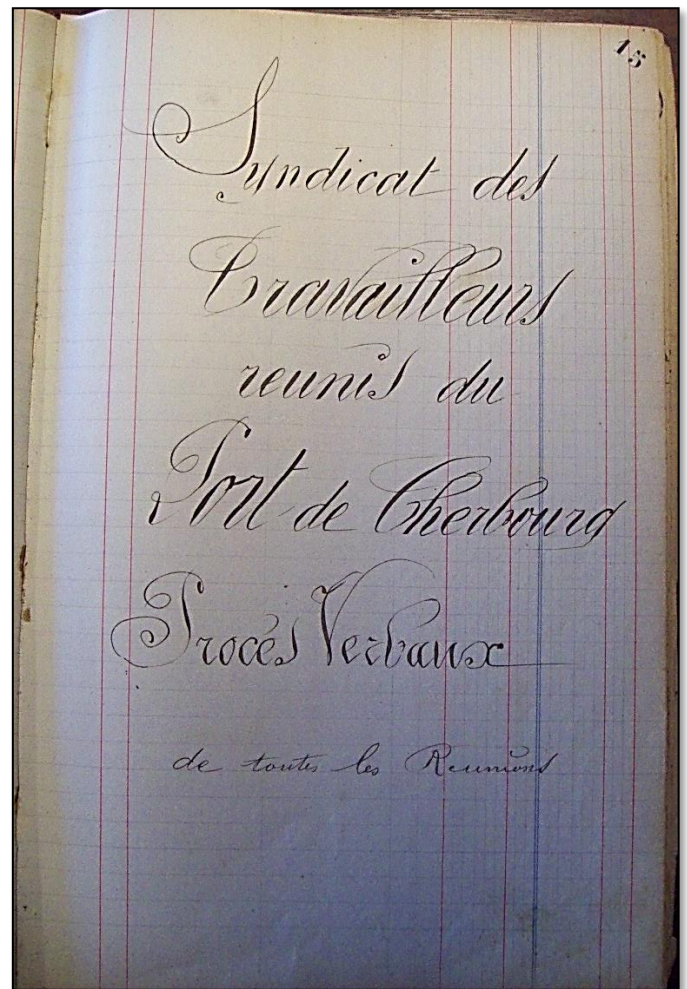 15
Syndicat des
Travailleurs
reunis du
Port de Cherbourg
Procés Verbaux
de toutes les Reunions